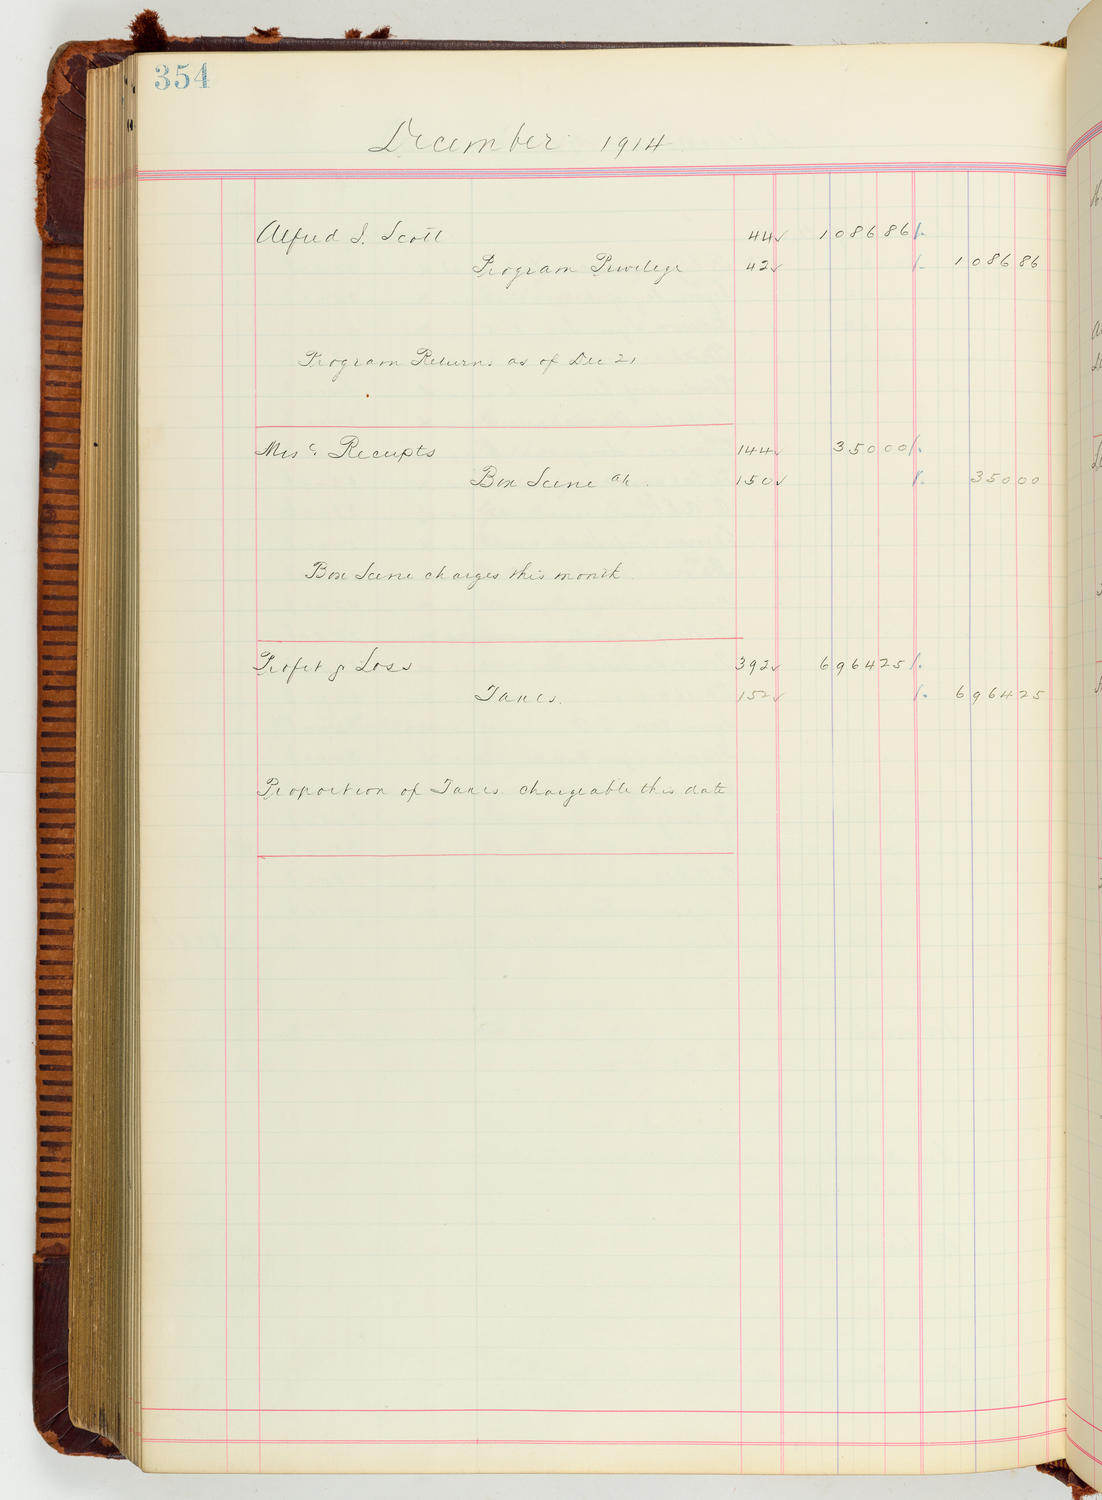 354
December 1914
Alfred S. Scott 44✓ 1086 86
Program Privilege 42✓ 1086 86
Program Returns as of Dec 21
Misc. Receipts 144✓ 350 00
Box Scene a/c. 150✓ 350 00
Box Scene charges this month.
Profit & Loss 392✓ 6964 25
Taxes. 152✓ 6964 25
Proportion of Taxes chargeable this date